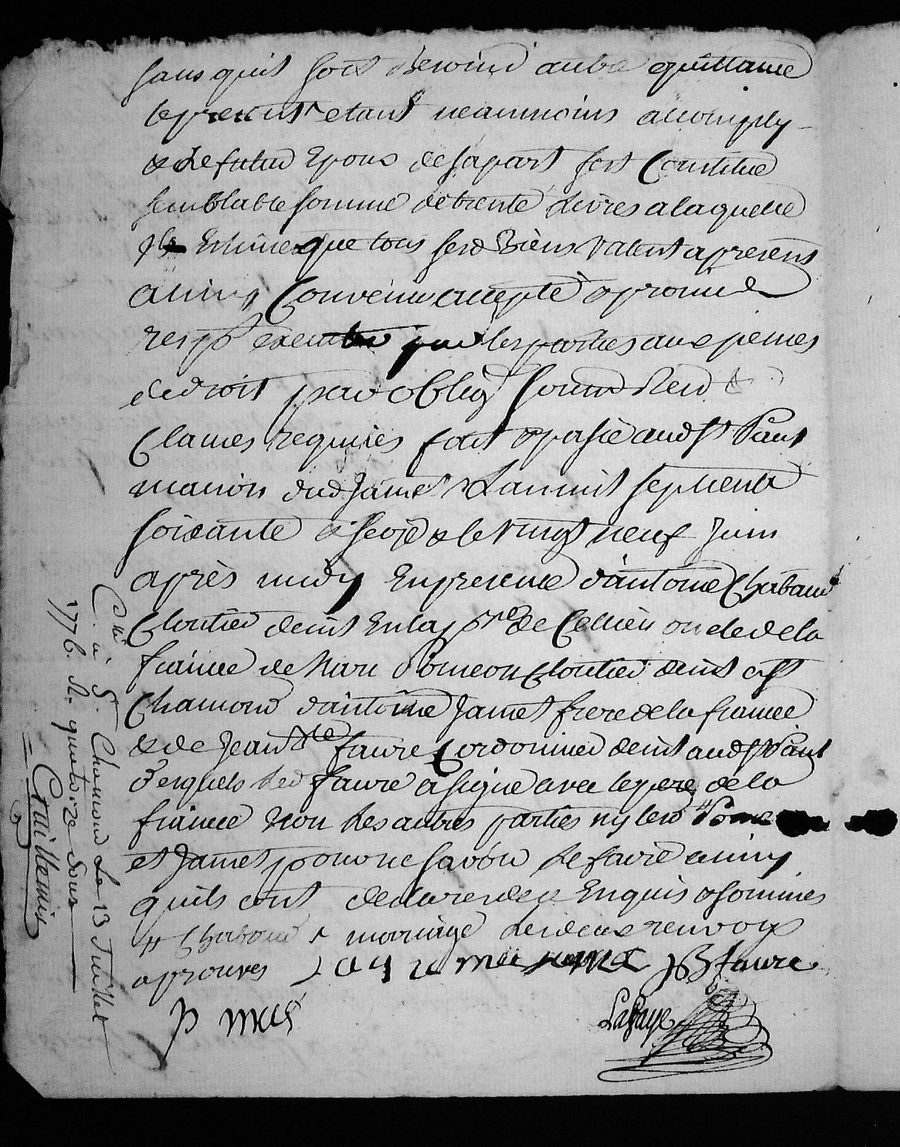 sans quil soit besoin dautre quittance
le present etant neanmoins accomply
& le futur Epoux de sa part sest Constitué
semblable somme de trente Livres a laquelle
Il Estime que tous ses Biens valent apresent
ainsy Convenu accepté & promis
par les parties aux peines
de droit par oblig soum Ren &
Clauses requises fait & passé aud St Paul
maison dud Jamet Lan mil sept cent
soixante & seize & le vingt neuf Juin
après midy En presence dantoine Chabaud
Cloutier demt En la psse de Cellieu oncle de la
fiancée de Cloutier demt a St
Chamond dantoine Jamet frere de la fiancée
& de Jean Bte faure Cordonnier demt aud St Paul
desquels led faure a signé avec le pere de la
fiancée non les autres parties ny lesd
et Jamet pour ne savoir Le faire ainsy
quils ont declaré de ce Enquis & sommés
# Chabaud ^ mariage les deux renvoys
aprouvés JB faure
Lafaye
C.llé à St Chamond Le 13 Juillet
1776. R. quatorze sous